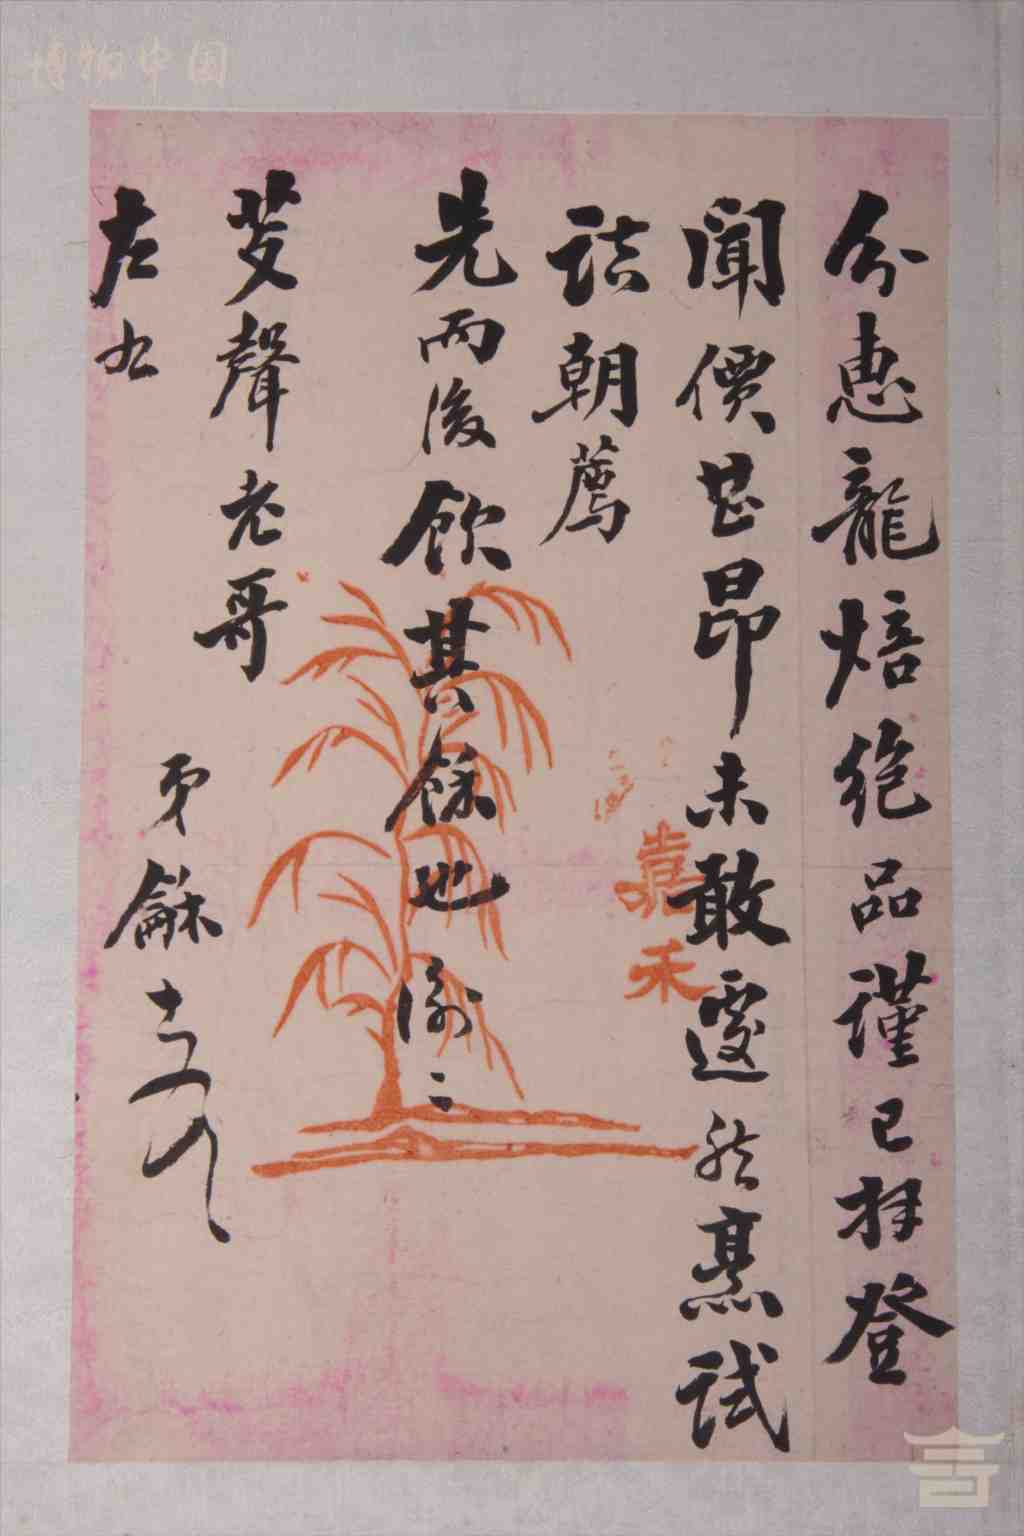 博物中国
分惠龍焙絕品謹已拜登
聞價甚昂未敢遽然烹試
詰朝薦
先而後飲其餘也謝〻
芰聲老哥
左右
弟龢
嘉禾